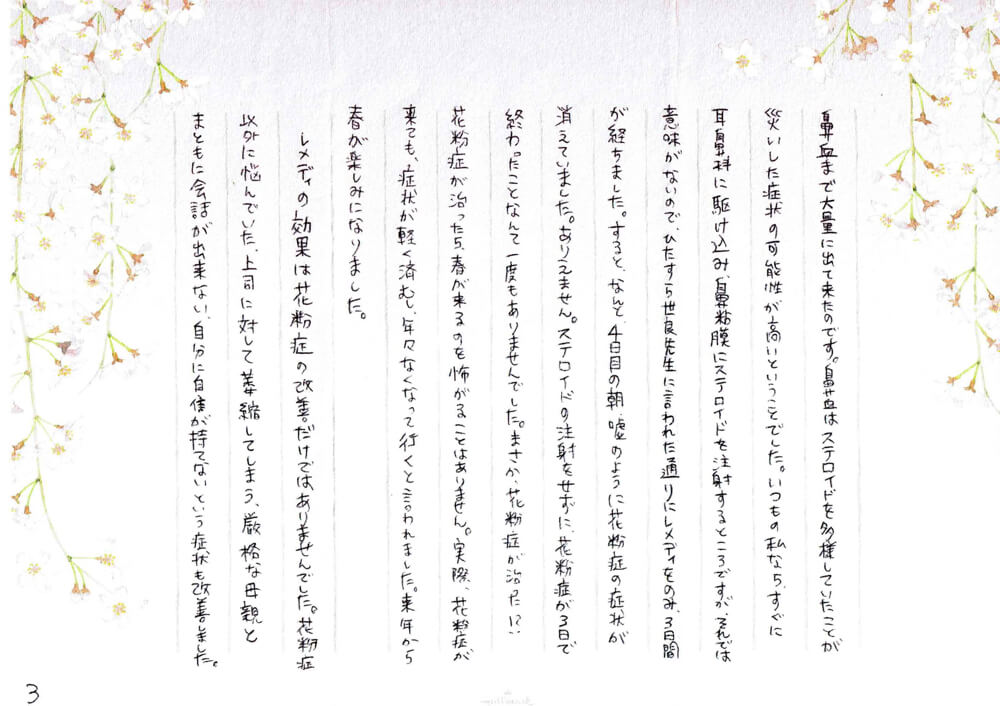 鼻血まで大量に出て来たのです。鼻血はステロイドを多様していたことが
災いした症状の可能性が高いということでした。いつもの私なら、すぐに
耳鼻科に駆け込み、鼻粘膜にステロイドを注射するところですが、それでは
意味がないので、ひたすら世良先生に言われた通りにレメディをのみ、3日間
が経ちました。すると、なんと、4日目の朝、嘘のように花粉症の症状が
消えていました。ありえません。ステロイドの注射をせずに、花粉症が3日で
終わったことなんて一度もありませんでした。まさか、花粉症が治った!?
花粉症が治ったら、春が来るのを怖がることはありません。実際、花粉症が
来ても、症状が軽く済むし、年々なくなって行くと言われました。来年から
春が楽しみになりました。
レメディの効果は花粉症の改善だけではありませんでした。花粉症
以外に悩んでいた、上司に対して萎縮してしまう、厳格な母親と
まともに会話が出来ない、自分に自信が持てないという症状も改善しました。
3